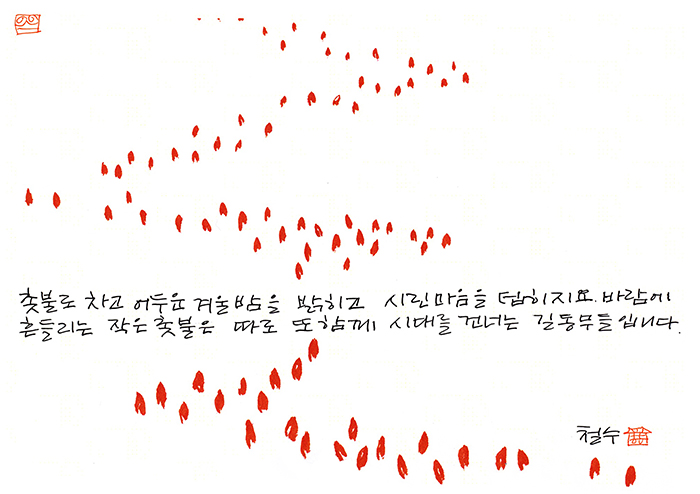 촛불로 차고 어두운 겨울밤을 밝히고 시린마음을 덥히지요. 바람에
흔들리는 작은 촛불은 따로 또 함께 시대를 건너는 길동무들입니다.
철수